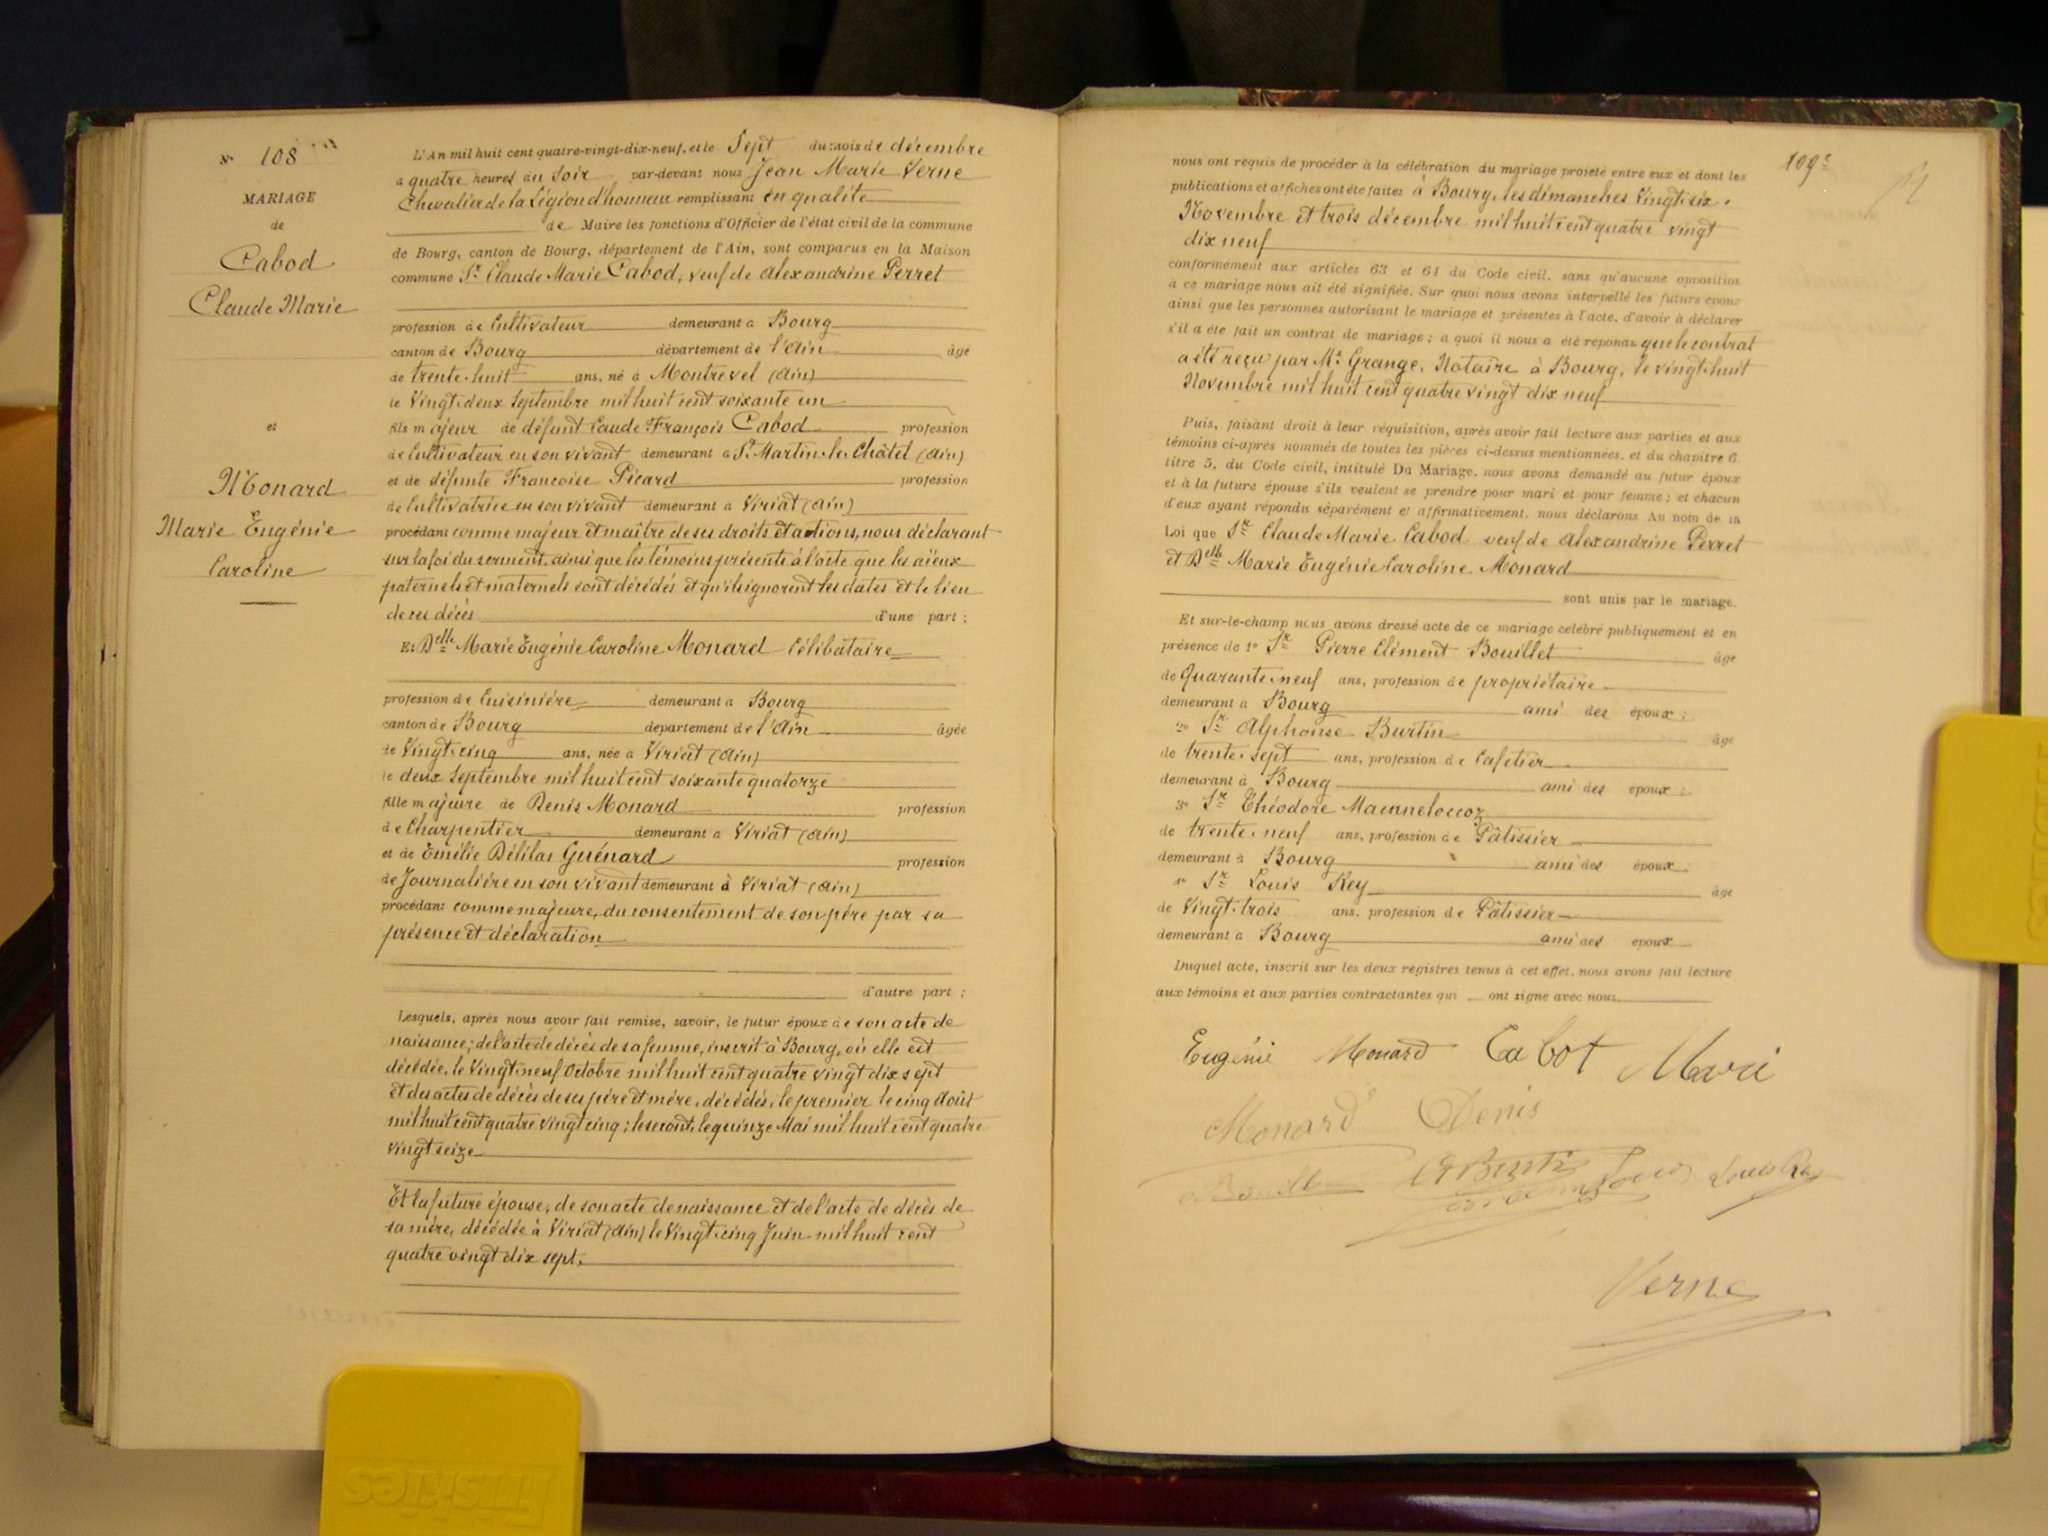 N° 108
MARIAGE
de
Cabod
Claude Marie
et
Monard
Marie Eugénie
Caroline
L'An mil huit cent quatre-vingt-dix-neuf, et le Sept du mois de décembre
a quatre heures du soir par-devant nous Jean Marie Verne
Chevalier de la Légion d'honneur remplissant en qualité
de Maire les fonctions d'Officier de l'état civil de la commune
de Bourg, canton de Bourg, département de l'Ain, sont comparus en la Maison
commune Sr Claude Marie Cabod, veuf de Alexandrine Perret
profession de Cultivateur demeurant à Bourg
canton de Bourg département de l'Ain âgé
de trente-huit ans, né à Montrevel (Ain)
le Vingt-deux Septembre mil huit cent soixante un
fils majeur de défunt Caude François Cabod profession
de Cultivateur en son vivant demeurant à St Martin-le-Châtel (Ain)
et de défunte Françoise Picard profession
de Cultivatrice en son vivant demeurant à Viriat (Ain)
procédant comme majeur et maître de ses droits et actions, nous déclarant
sur la foi du serment, ainsi que les témoins présents à l'acte que les aïeux
paternels et maternels sont décédés et qu'ils ignorent les dates et le lieu
de ces décès d'une part ;
Et Delle Marie Eugénie Caroline Monard Célibataire
profession de Cuisinière demeurant à Bourg
canton de Bourg département de l'Ain âgée
de Vingt-cinq ans, née à Viriat (Ain)
le deux Septembre mil huit cent soixante quatorze
fille majeure de Denis Monard profession
de Charpentier demeurant à Viriat (Ain)
et de Emélie Délilas Guénard profession
de Journalière en son vivant demeurant à Viriat (Ain)
procédant comme majeure, du consentement de son père par sa
présence et déclaration
d'autre part ;
Lesquels, après nous avoir fait remise, savoir, le futur époux de son acte de
naissance ; de l'acte de décès de sa femme, inscrit à Bourg, où elle est
décédée, le Vingt-neuf Octobre mil huit cent quatre vingt dix sept
et des actes de décès de ses père et mère, décédés, le premier le cinq Août
mil huit cent quatre vingt cinq ; le second, le quinze Mai mil huit cent quatre
vingt seize
Et la future épouse, de son acte de naissance et de l'acte de décès de
sa mère, décédée à Viriat (Ain) le Vingt-cinq Juin mil huit cent
quatre vingt dix sept.
109e
nous ont requis de procéder à la célébration du mariage projeté entre eux et dont les
publications et affiches ont été faites à Bourg, les dimanches Vingt-six
Novembre et trois décembre mil huit cent quatre vingt
dix neuf
conformément aux articles 63 et 64 du Code civil, sans qu'aucune opposition
à ce mariage nous ait été signifiée. Sur quoi nous avons interpellé les futurs époux
ainsi que les personnes autorisant le mariage et présentes à l'acte, d'avoir à déclarer
s'il a été fait un contrat de mariage ; à quoi il nous a été répondu que le contrat
a été reçu par Me Grange, Notaire à Bourg, le vingt-huit
Novembre mil huit cent quatre vingt dix neuf
Puis, faisant droit à leur réquisition, après avoir fait lecture aux parties et aux
témoins ci-après nommés de toutes les pièces ci-dessus mentionnées, et du chapitre 6
titre 5, du Code civil, intitulé Du Mariage, nous avons demandé au futur époux
et à la future épouse s'ils veulent se prendre pour mari et pour femme ; et chacun
d'eux ayant répondu séparément et affirmativement, nous déclarons Au nom de la
Loi que Sr Claude Marie Cabod veuf de Alexandrine Perret
et Delle Marie Eugénie Caroline Monard
sont unis par le mariage.
Et sur-le-champ nous avons dressé acte de ce mariage célébré publiquement et en
présence de 1° Sr Pierre Clément Bouillet âgé
de Quarante-neuf ans, profession de propriétaire
demeurant à Bourg ami des époux ;
2° Sr Alphonse Burtin âgé
de trente-sept ans, profession de Cafetier
demeurant à Bourg ami des époux ;
3° Sr Théodore Maenneloccoz
de trente-neuf ans, profession de Pâtissier
demeurant à Bourg ami des époux
4° Sr Louis Rey âgé
de Vingt-trois ans, profession de Pâtissier
demeurant à Bourg ami des époux
Duquel acte, inscrit sur les deux registres tenus à cet effet, nous avons fait lecture
aux témoins et aux parties contractantes qui ont signé avec nous
Eugénie Monard Cabot Mari
Monard Denis
Louis Rey
Verne